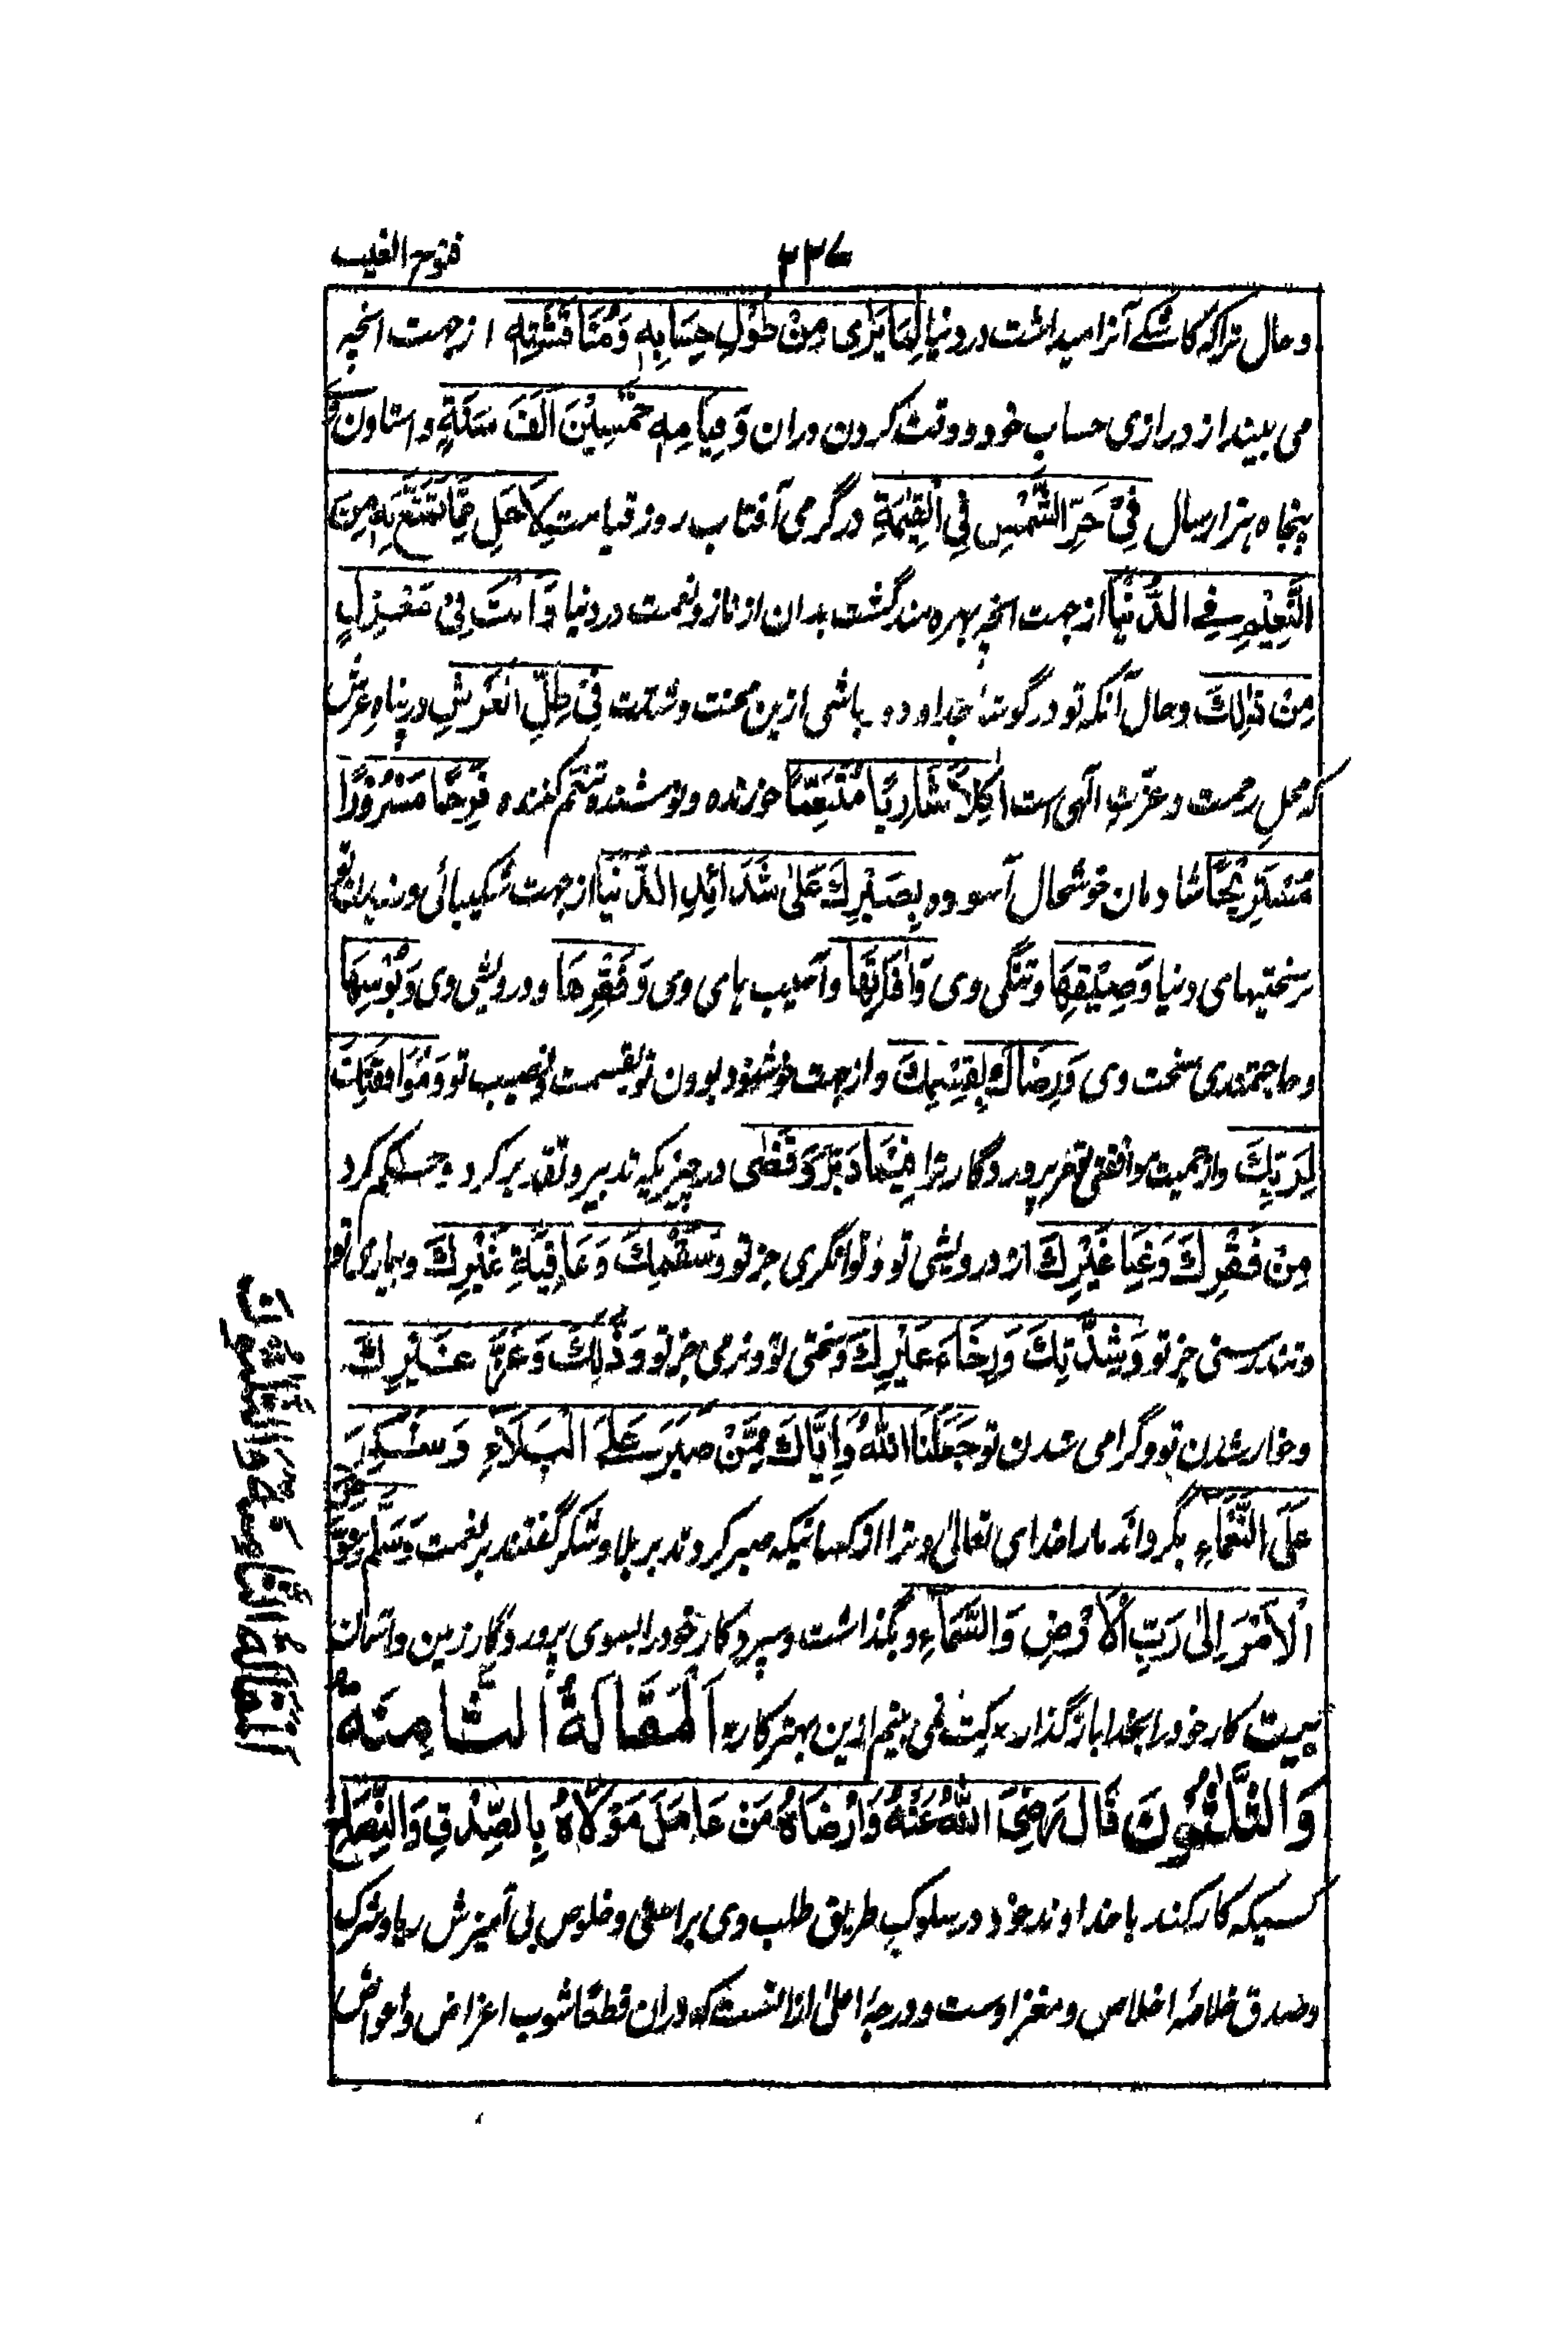 ۲۳۷ فتوح الغیب
و حال ترا که کاشکے آنرا میداشت در دنیا لِمَا یَرٰی مِنْ طُوْلِ حِسَابِهٖ وَمُنَاقَشَتِهٖ از جهت انچه
می بیند از درازی حساب خود و دقت کردن دران وَقِیَامِهٖ خَمْسِیْنَ اَلْفَ سَنَةٍ و استادن
پنجاه هزار سال فِیْ حَرِّ الشَّمْسِ فِی الْقِیٰمَةِ در گرمی آفتاب روز قیامت لِاَجَلِ مِمَّا تَمَتَّعَ بِهٖ مِنَ
النَّعِیْمِ فِے الدُّنْیَا از جهت انچه بهره مند گشت بدان از ناز و نعمت در دنیا وَاَنْتَ فِیْ مَعْزِلٍ
مِنْ ذٰلِكَ و حال آنکه تو در گوشهٔ جدا بوده باشی ازین محنت و شدت فِیْ ظِلِّ الْعَرْشِ در پناه عرش
که محلِ رحمت و عزّتِ الٰهی ست اٰكِلاً شَارِبًا مُتَنَعِّمًا خورنده و نوشنده تنعّم کننده فَرِحًا مَسْرُوْرًا
مُسْتَرِیْحًا شادمان خوشحال آسوده بِصَبْرِكَ عَلیٰ شَدَائِدِ الدُّنْیَا از جهت شکیبائی ورزیدن تو
بر سختیهای دنیا وَضِیْقِهَا و تنگی وی وَاٰفَاتِهَا و آسیب های وی وَفَقْرِهَا و درویشی وی وَبُؤْسِهَا
و حاجتمندی سخت وی وَرِضَاكَ بِقِسْمِكَ و از جهت خوشنود بودن تو بقسمت و نصیب تو وَمُوَافَقَتِكَ
لِرَبِّكَ و از جهت موافقتی تو مر پروردگار ترا فِیْمَا دَبَّرَ وَقَضٰی در چیزیکه تدبیر و تقدیر کرد و حکم کرد
مِنْ فَقْرِكَ وَغِنَا غَیْرِكَ از درویشی تو و توانگری جز تو وَسَقْمِكَ وَعَافِیَةِ غَیْرِكَ و بیماری تو
و تندرستی جز تو وَشِدَّتِكَ وَرِخَاءِ غَیْرِكَ و سختی تو و نرمی جز تو وَذُلِّكَ وَعِزِّ غَیْرِكَ
و خوار شدن تو و گرامی شدن تو جَعَلَنَا اللهُ وَاِیَّاكَ مِمَّنْ صَبَرَ عَلَے الْبَلَاءِ وَشَكَرَ
عَلَی النَّعْمَاءِ بگرداند مارا خدای تعالیٰ و ترا از کسانیکه صبر کردند بر بلا و شکر گفتند بر نعمت وَسَلَّمَ وَفَوَّضَ
الْاَمْرَ اِلیٰ رَبِّ الْاَرْضِ وَالسَّمَاءِ و بگذاشت و سپرد کار خود را بسوی پروردگار زمین و آسمان
بیت کار خود را بخدا باز گذار * کیت نمی بینم ازین بهتر کار * اَلْمَقَالَةُ الثَّامِنَةُ
وَالثَّلٰثُوْنَ قَالَ رَضِیَ اللهُ عَنْهُ وَاَرْضَاهُ مَنْ عَامَلَ مَوْلَاهُ بِالصِّدْقِ وَالنِّصَاحِ
کسیکه کار کند با خداوند خود در سلوک طریق طلب وی براستی و خلوص بی آمیزش ریا و شرک
و صدق خلاصهٔ اخلاص و مغز اوست و درجهٔ اعلیٰ ازانست که دران قطعًا شوب اعراض و اعواض
المقالة الثامنة والثلثون